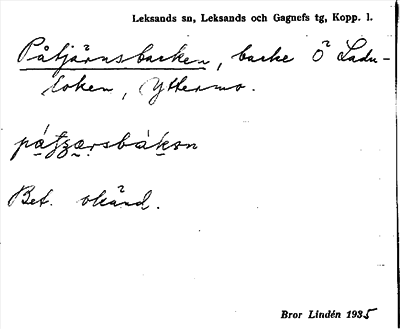 Leksands sn, Leksands och Gagnefs tg, Kopp. l.
Påtjärnsbacken, backe Ö Ladu-
loken, Yttermo.
Bet. okänd.
Bror Lindén 1935